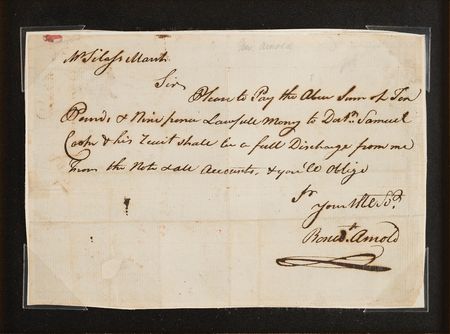 Mr Silass Marsh
Mr. Arnold
Sir
Please to Pay the Above Sum of Ten
Pounds & Nine pence Lawfull Mony to Samuel
& his shall be a full Discharge from me
from the Note & all Accounts, & you'll Oblige
Sr
Your
Bened.t Arnold